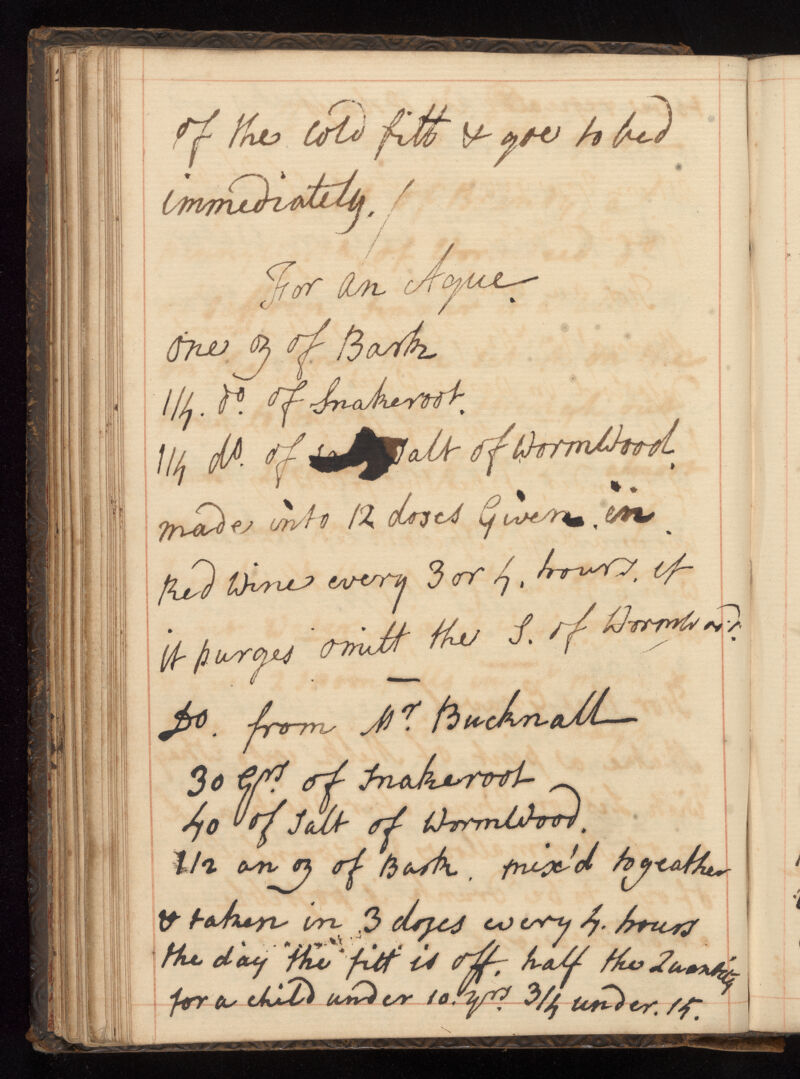 of the Cold fitt & goe to bed
immediately. /
For an Ague.
one oz of Bark
1/4. do. of Snakeroot.
1/4 do. of Salt of WormWood.
made into 12 doses Given in
Red Wine every 3 or 4. hours. if
it purges omitt the S. of Wormwood.
Do. from Mr. Bucknall
30 Grs. of Snakeroot
40 of Salt of WormWood.
1/2 an oz of Bark. mix'd togeather
& taken in 3 doses every 4. hours
the day the fitt is off. half the Quantity
for a child under 10. yrs. 3/4 under. 15.